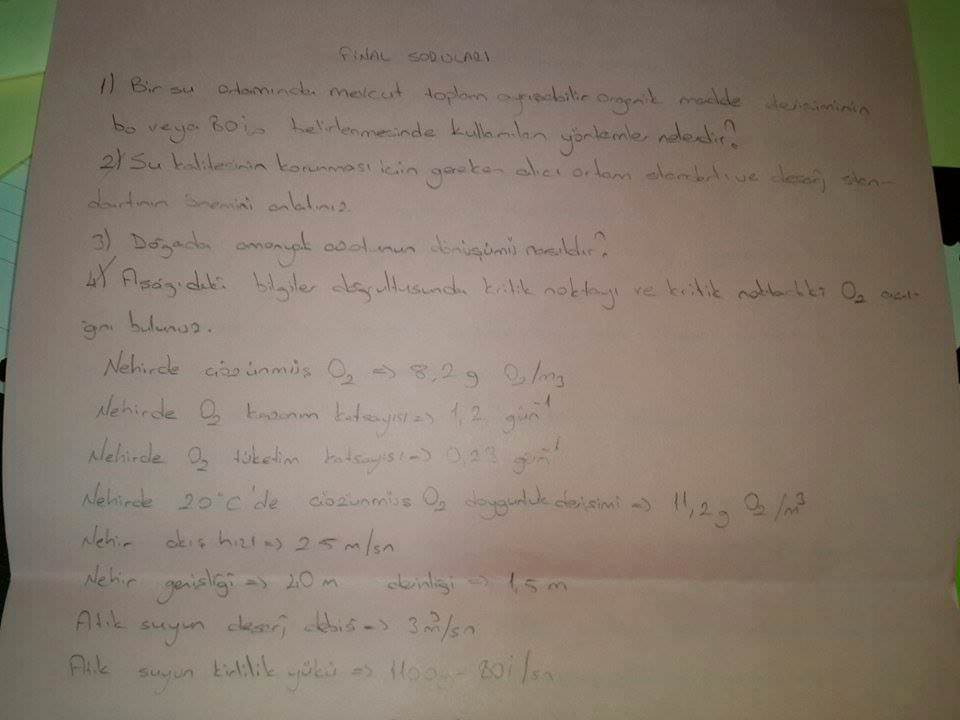 FİNAL SORULARI
1) Bir su ortamında mevcut toplam ayrışabilir organik madde derişiminin
bo veya BOİ belirlenmesinde kullanılan yöntemler nelerdir?
2) Su kalitesinin korunması için gereken alıcı ortam standartı ve deşarj stan-
dartının önemini anlatınız
3) Doğada amonyak azotunun dönüşümü nasıldır?
4) Aşağıdaki bilgiler doğrultusunda kritik noktayı ve kritik noktadaki O2
ğını bulunuz.
Nehirde çözünmüş O2 => 8,2 g O2/m3
Nehirde O2 kazanım katsayısı => 1,2 gün-1
Nehirde O2 tüketim katsayısı => 0,23 gün-1
Nehirde 20°C'de çözünmüş O2 doygunluk derişimi => 11,2 g O2/m3
Nehir akış hızı => 25 m/sn
Nehir genişliği => 40 m derinliği => 1,5 m
Atık suyun deşarj debisi => 3 m3/sn
Atık suyun kirlilik yükü => BOİ/sn